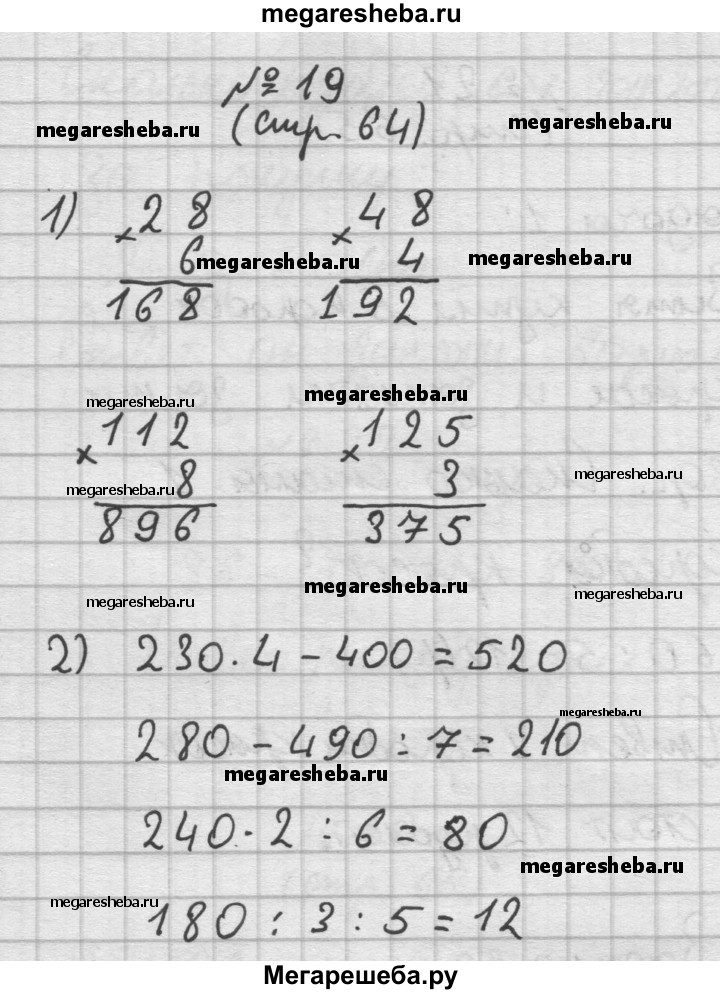 megaresheba.ru
№ 19
megaresheba.ru (стр. 64) megaresheba.ru
1) × 28 × 48
6 megaresheba.ru 4 megaresheba.ru
168 192
megaresheba.ru megaresheba.ru
× 112 × 125
megaresheba.ru 8 3 megaresheba.ru
896 375
megaresheba.ru megaresheba.ru megaresheba.ru
2) 230 · 4 - 400 = 520
megaresheba.ru
280 - 490 : 7 = 210
megaresheba.ru
240 · 2 : 6 = 80
megaresheba.ru
megaresheba.ru
180 : 3 : 5 = 12
Мегарешеба.ру